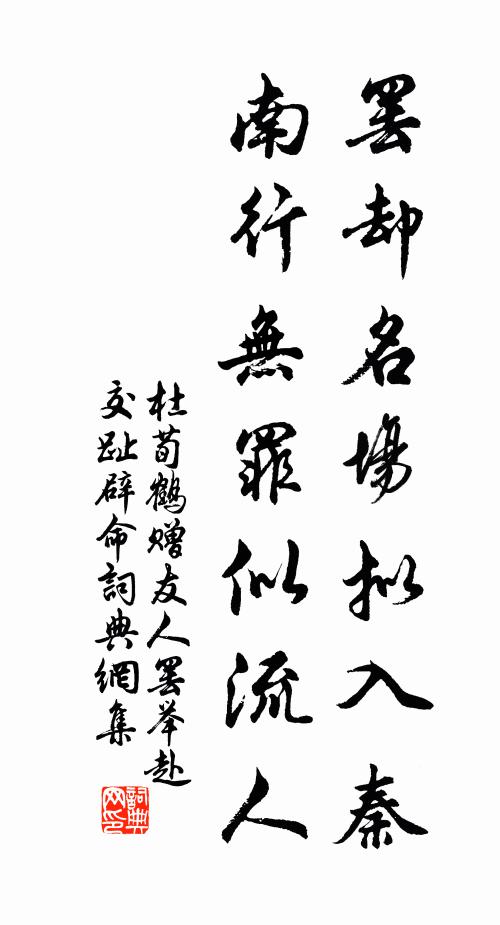 罷却名場拟入秦
南行無罪似流人
杜荀鶴赠友人罢举赴
交趾辟命詞典網集
詞典
网印